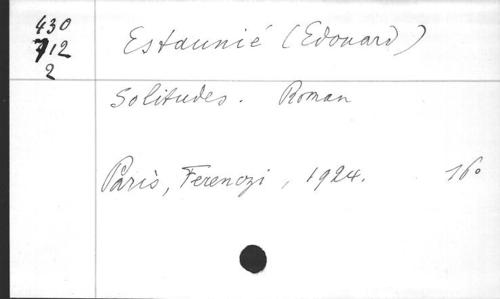 430
712
2
Estaunié (Edouard)
Solitudes. Roman
Paris, Ferenczi, 1924. 16°